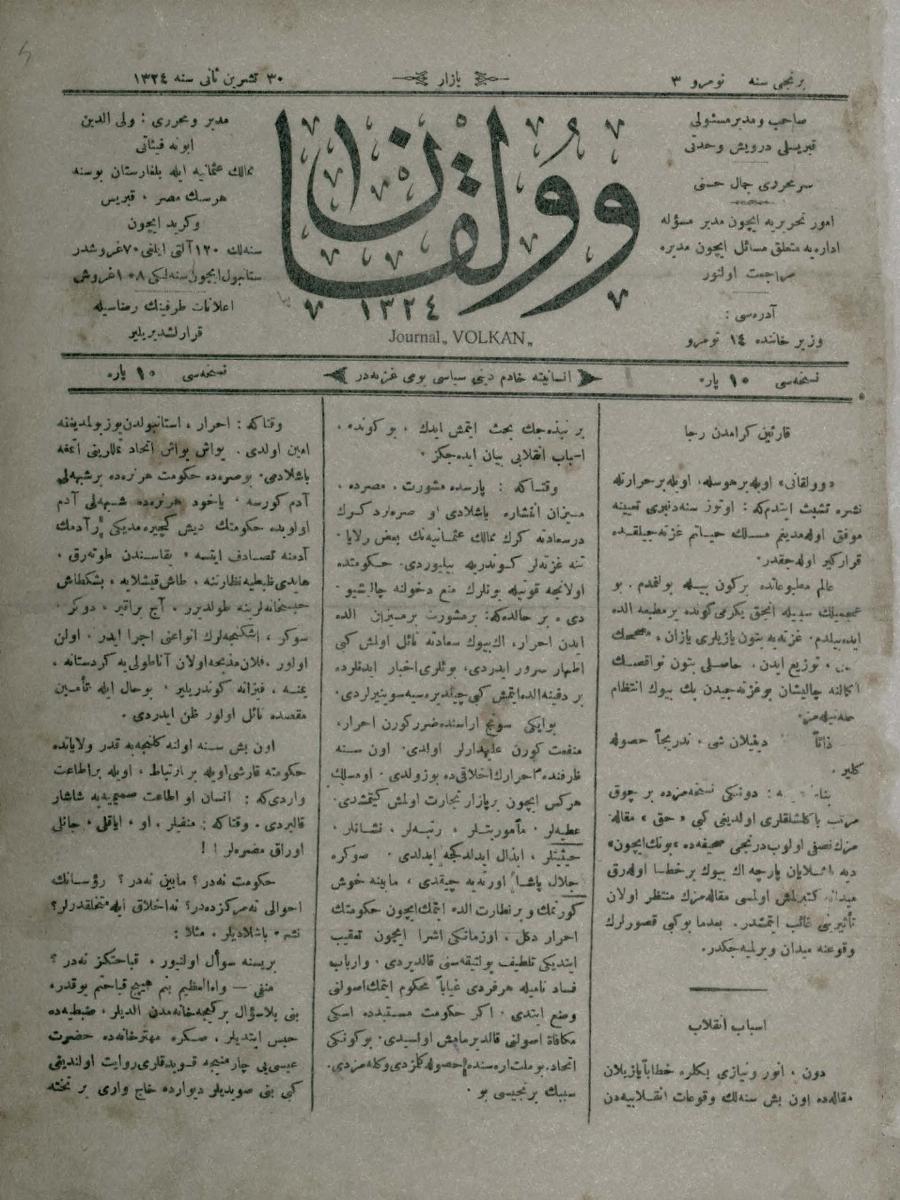 برنجی سنه نومرو ۳
بازار
۳۰ تشرین ثانی سنه ۱۳۲٤
صاحب و مدیر مسئولی
قبریسلی درویش وحدتی
سر محرری جمال حسنی
امور تحریریه ایچون مدیر مسؤله
اداریه متعلق مسائل ایچون مدیره
مراجعت اولنور
آدره‌سی :
وزیر خاننده ۱٤ نومرو
وولقان
۱۳۲٤
Journal „ VOLKAN „
مدیر و محرری : ولی الدین
ابونه فیئاتی
ممالك عثمانیه ایله بلغارستان بوسنه
هرسك مصر ، قبریس
وكرید ایچون
سنه‌لك ۱۲۰ آلتی ایلغی ۷۰ غروشدر
ستانبول ایچون سنه‌لكی ۱۰۸ غروش
اعلانات طرفینك رضاسیله
قرارلشدیریلیر
نسخه‌سی ۱۰ پاره
انسانیته خادم دینی سیاسی یومی غزته‌در
نسخه‌سی ۱۰ پاره
قارئین كرامدن رجا
«وولقانی» اویله بر هوسله، اویله بر حرارتله
نشره تشبث ایتدم‌كه : اوتوز سنه‌دنبری تعیینه
موفق اوله‌مدیغم مسلك حیاتم غزته‌جیلقده
قرار كیر اوله‌جقدر.
عالم مطبوعاتده بركون بیله بولنمدم . بو
عجمیلك سببیله آنجق یكرمی كونده بر مطبعه الده
ایده‌بیلدم. غزته‌یه بتون یازیلری یازان ،
توزیع ایدن . حاصلی بتون نواقصك
اكالنه چالیشان بو غزته‌جیدن پك بیوك انتظام
ذاتاً دیفیلان شی ، تدریجاً حصوله
كلیر .
دونكی نسخه‌مزده بر چوق
مرتب یاكلشلقلری اولدیغی كبی «حق» مقاله
مزك نصفی اولوب درنجی صحیفه‌ده «بونك ایچون»
دیه باشلایان پارچه اك بیوك بر خطا اوله‌رق
اولمسی مقاله‌مزك منتظر اولان
تأثیرینی غائب ایتمشدر. بعدما بو كبی قصورلرك
وقوعنه میدان ویرلمیه‌جكدر.
اسباب انقلاب
دون ، انور و نیازی بكلره خطاباً یازیلان
مقاله‌ده اون بش سنه‌لك وقوعات انقلابیه‌دن
بر نبذه‌جك بحث ایتمش ایدك ، بو كونده ،
اسباب انقلابی بیان ایده‌جكز .
وقتاكه : پارسده مشورت . مصرده ،
میزان انتشاره باشلادی و صره‌لرده كرك
درسعادته كرك ممالك عثمانیه‌نك بعض ولایا.
تنه غزته‌لر كوندریله بیلیوردی. حكومتده
اولانجه قوتیله بونلرك منع دخولنه چالیشیو.
دی ، بر حالده‌كه : بر مشورت بر میزان الده
ایدن احرار، اك بیوك سعادته نائل اولمش كبی
اظهار سرور ایدردی، بونلری اخبار ایدنلرده
بر دفینه الده ایتمش كبی چیلدیره‌سیه سوینیرلردی.
بو ایكی سونج اراسنده ضرر كورن احرار،
منفعت كورن علیهدارلر اولدی. اون سنه
ظرفنده احرارك اخلاقی‌ده بوزولدی. او مسلك
هركس ایچون بر پازار تجارت اولمش كیتمشدی.
عطیه‌لر ، مأموریتلر ، رتبه‌لر ، نشانلر .
حیثیتلر ، ابذال ایدلدكجه ایدلدی . صوكره
جلال پاشا اورته‌یه چیقدی ، مابینه خوش
كورنمك و بر نظارت الده ایتمك ایچون حكومتك
احرار دكل ، اوزمانكی اشرا ایچون تعقیب
ایتدیكی تلطیف پولتیقه‌سنی قالدیردی . و ارباب
فساد نامیله هر فردی غیاباً محكوم ایتمك اصولنی
وضع ایتدی . اكر حكومت مستبده اسكی
مكافاة اصولنی قالدیرمامش اولسیدی. بو كونكی
اتحاد، بو ملت اره‌سنده حصوله كلمزدی وكله‌مزدی.
سببك برنجیسی بو .
وقتاكه : احرار ، استانبولدن یوز بولمدیغنه
امین اولدی. یواش یواش اتحاد تللرینی اتمغه
باشلادی. بو صره‌ده حكومت هر نره‌ده بر شبهه‌لی
آدم كورسه ، یاخود هر نره‌ده شبهه‌لی آدم
اولوبده حكومتك دیش كچیره‌مدیكی بر آدمك
آدمنه تصادف ایتسه ، یقاسندن طوته‌رق ،
هایدی ضبطیه نظارتنه ، طاش قیشلایه ، بشكطاش
حبسخانه‌لرینه طولدیرر ، آج براقیر ، دوكر ،
سوكر ، اشكنجه‌لرك انواعنی اجرا ایدر . اولن
اولور ، قلان مذبحه اولان آناطولی‌یه كردستانه ،
یمنه ، فیزانه كوندریلیر ، بو حال ایله تأمین
مقصده نائل اولور ظن ایدردی .
اون بش سنه اولنه كلنجیه قدر ولایاتده
حكومته قارشی اویله بر ارتباط ، اویله بر اطاعت
واردی‌كه : انسان او اطاعت صمیمیه‌یه شاشار
قالیردی . وقتاكه : منفیلر ، او ، ایاقلی ، جانلی
اوراق مضره‌لر ! !
حكومت نه‌در ؟ مابین نه‌در ؟ رؤسانك
احوالی نه مركزده‌در ؟ نه اخلاق ایله متخلقدرلر؟
نشره باشلادیلر . مثلا :
بریسنه سوأل اولنیور ، قباحتكز نه‌در ؟
منفی — والله العظیم بنم هیچ قباحتم یوقدر،
بنی بلاسؤال بر كیجه خانه‌مدن الدیلر، ضبطیه‌ده
حبس ایتدیلر ، صكره مهترخانه‌ده حضرت
عیسی‌یی چارمیخه قویدقلری روایت اولندیغی
كبی بنی صویدیلر دیوارده خاچ واری بر تخته